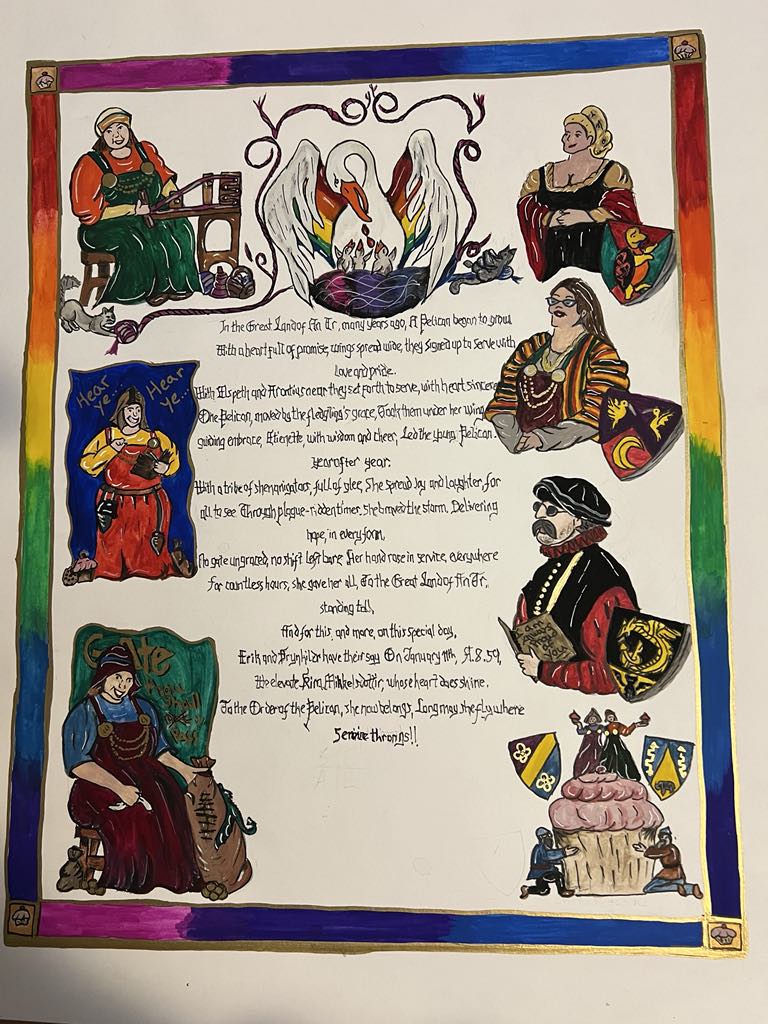 Hear ye...
Hear ye...
In the Great Land of An Tir, many years ago, A Pelican began to grow
With a heart full of promise, wings spread wide, they signed up to serve with
love and pride.
With Elspeth and Arontius near they set forth to serve, with heart sincere
One Pelican, moved by the fledgling's grace, Took them under her wing
guiding embrace, Etienette, with wisdom and cheer, Led the young Pelican
year after year.
With a tribe of shenanigators, full of glee, She spread Joy and laughter, for
all to see Through plague-ridden times, she braved the storm, Delivering
hope, in every form,
No gate ungraced, no shift left bare Her hand rose in service, everywhere
for countless hours, she gave her all, To the Great Land of An Tir,
standing tall,
And for this, and more, on this special day,
Erik and Brynhildr have their say On January 11th, A.S. 59,
We elevate Kira Mikkelsdottir, whose heart does shine.
To the Order of the Pelican, she now belongs, Long may she fly where
Service throngs!!
Gate
Thou Shall
Not
Pass